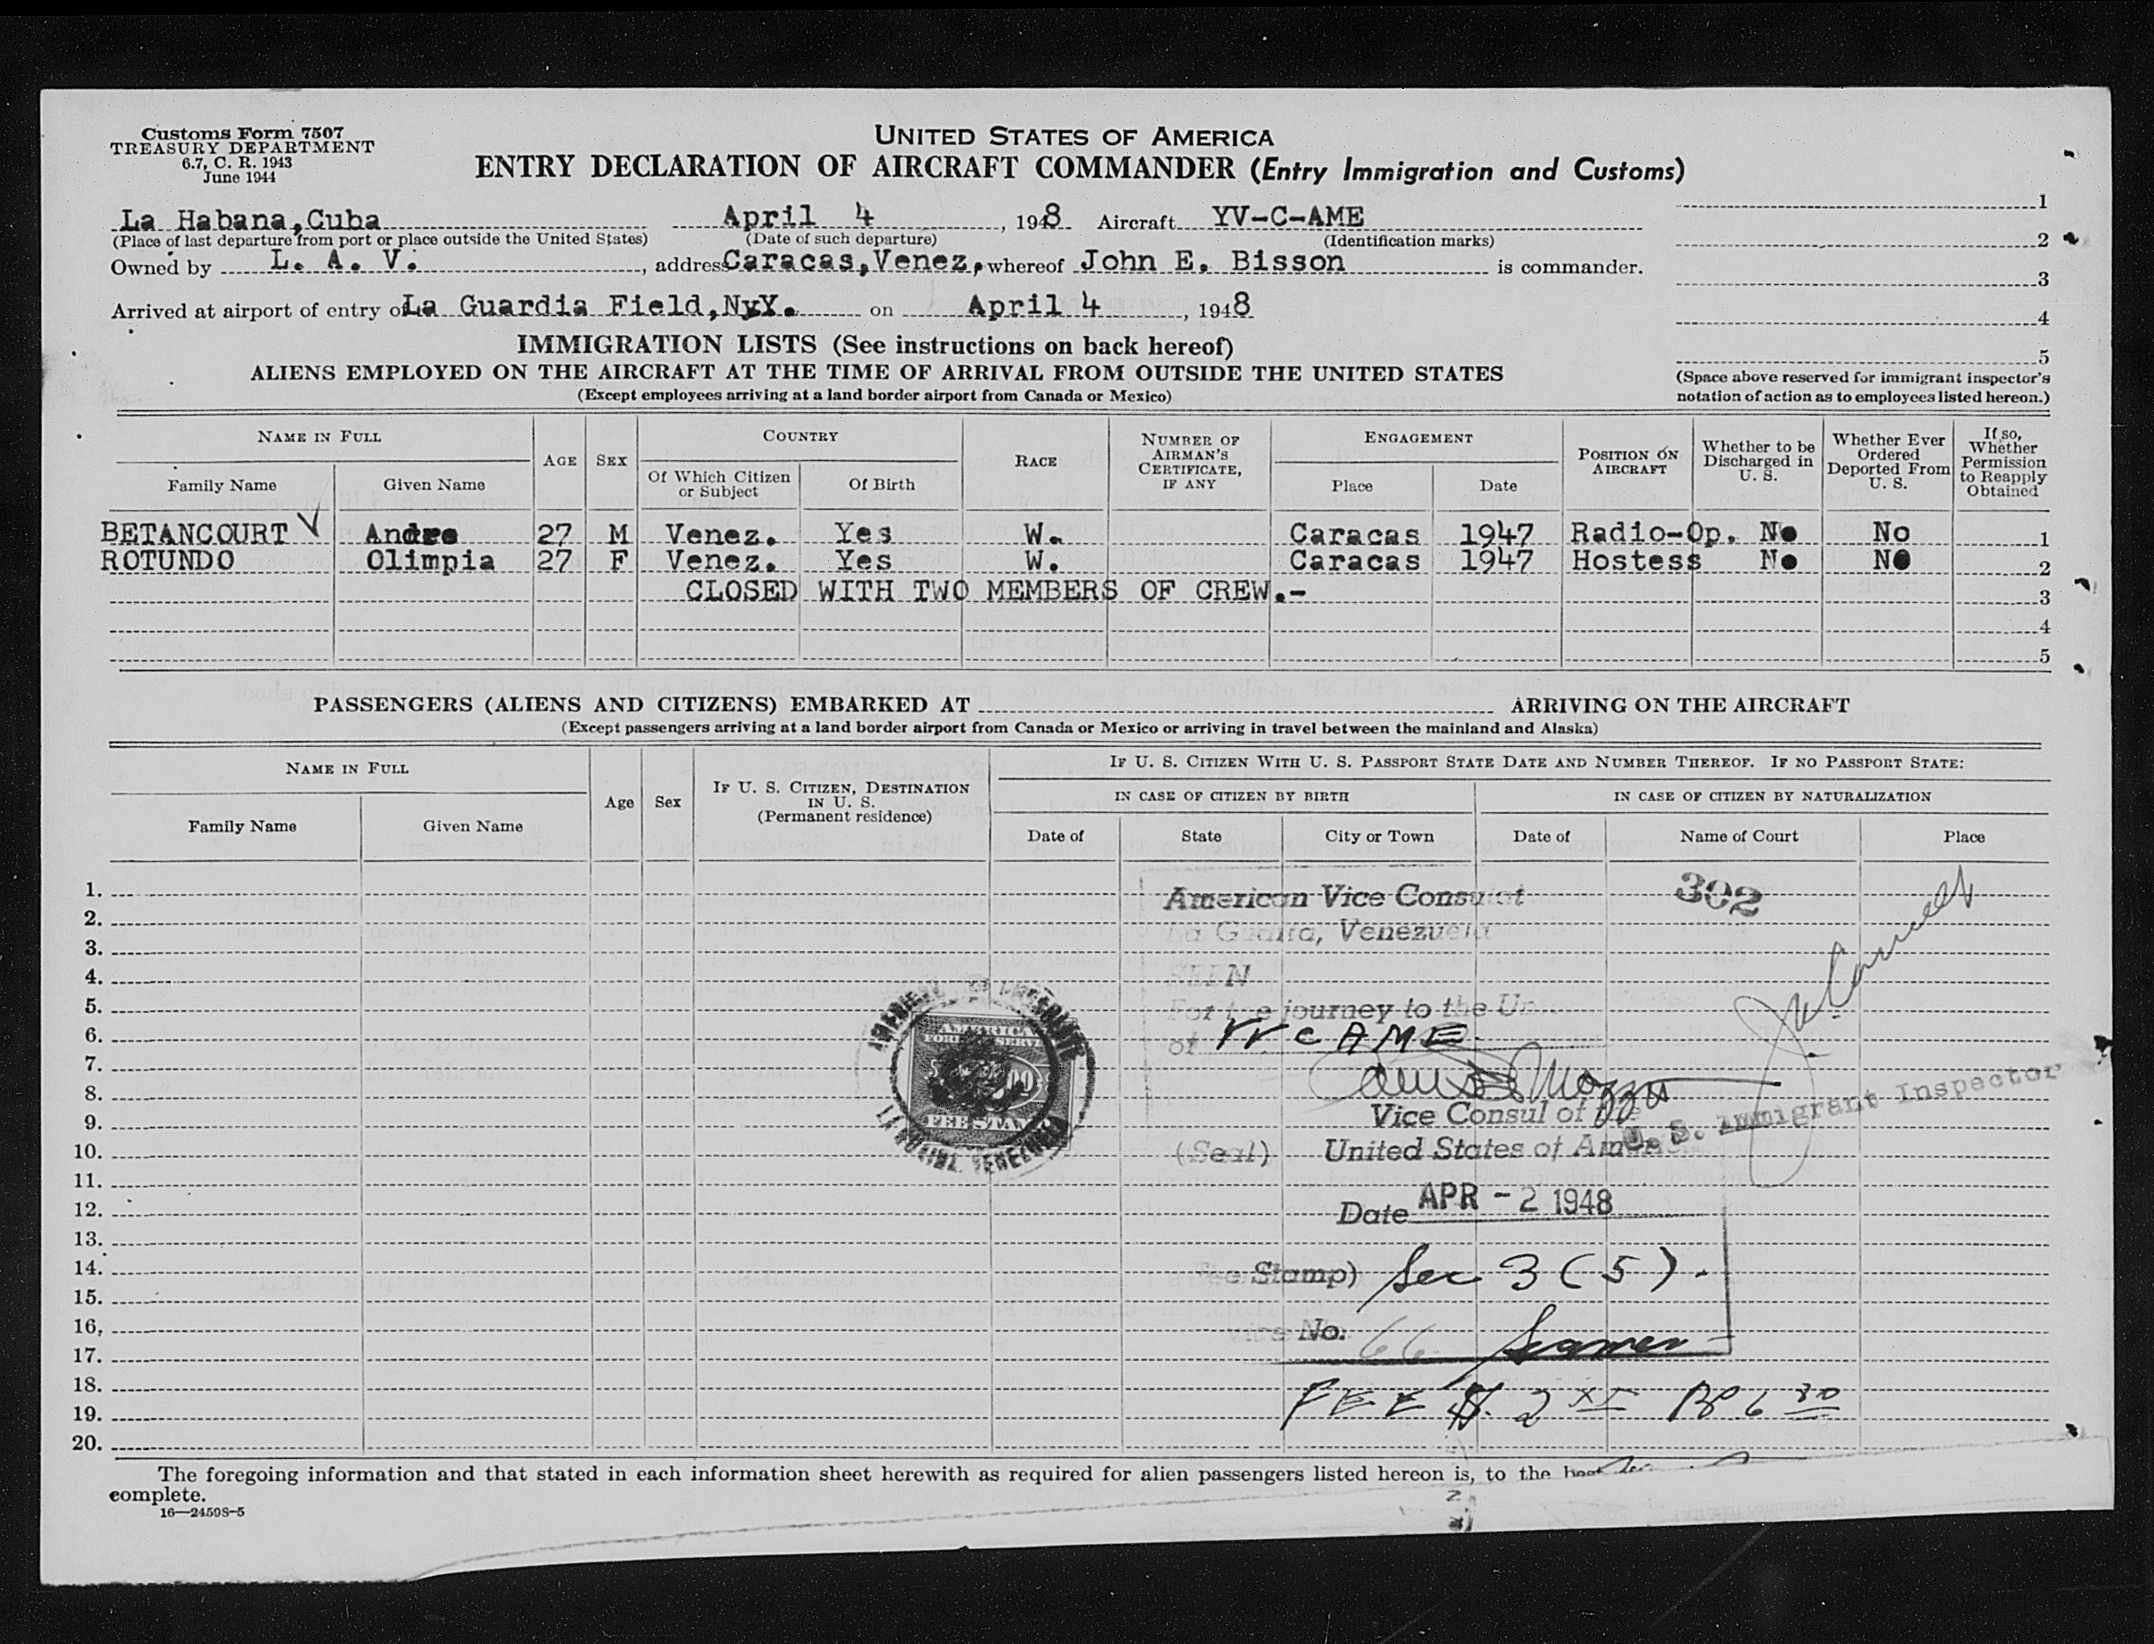 Customs Form 7507
TREASURY DEPARTMENT
6.7, C. R. 1943
June 1944
UNITED STATES OF AMERICA
ENTRY DECLARATION OF AIRCRAFT COMMANDER (Entry Immigration and Customs)
La Habana, Cuba April 4, 1948 Aircraft YV-C-AME
(Place of last departure from port or place outside the United States) (Date of such departure) (Identification marks)
Owned by L. A. V., address Caracas, Venez, whereof John E. Bisson is commander.
Arrived at airport of entry of La Guardia Field, NyY. on April 4, 1948
1
2
3
4
5
(Space above reserved for immigrant inspector's
notation of action as to employees listed hereon.)
IMMIGRATION LISTS (See instructions on back hereof)
ALIENS EMPLOYED ON THE AIRCRAFT AT THE TIME OF ARRIVAL FROM OUTSIDE THE UNITED STATES
(Except employees arriving at a land border airport from Canada or Mexico)
NAME IN FULL
Family Name Given Name
AGE SEX
COUNTRY
Of Which Citizen or Subject
Of Birth
RACE
NUMBER OF AIRMAN'S CERTIFICATE, IF ANY
ENGAGEMENT
Place Date
POSITION ON AIRCRAFT
Whether to be Discharged in U. S.
Whether Ever Ordered Deported From U. S.
If so, Whether Permission to Reapply Obtained
BETANCOURT Andre 27 M Venez. Yes W. Caracas 1947 Radio-Op. No No 1
ROTUNDO Olimpia 27 F Venez. Yes W. Caracas 1947 Hostess No No 2
CLOSED WITH TWO MEMBERS OF CREW.- 3
4
5
PASSENGERS (ALIENS AND CITIZENS) EMBARKED AT ARRIVING ON THE AIRCRAFT
(Except passengers arriving at a land border airport from Canada or Mexico or arriving in travel between the mainland and Alaska)
NAME IN FULL
Family Name Given Name
Age Sex
IF U. S. CITIZEN, DESTINATION IN U. S.
(Permanent residence)
IF U. S. CITIZEN WITH U. S. PASSPORT STATE DATE AND NUMBER THEREOF. IF NO PASSPORT STATE:
IN CASE OF CITIZEN BY BIRTH IN CASE OF CITIZEN BY NATURALIZATION
Date of State City or Town Date of Name of Court Place
1.
2.
3.
4.
5.
6.
7.
8.
9.
10.
11.
12.
13.
14.
15.
16.
17.
18.
19.
20.
American Vice Consulat
La Guaira, Venezuela
SEEN
For the journey to the Un
of YV C AME
Vice Consul of the
(Seal) United States of America
Date APR - 2 1948
Fee Stamp) Sec 3 (5).
No. 66
FEE $ 2
302
U. S. Immigrant Inspector
AMERICAN
FOREIGN SERVICE
FEE STAMP
LA GUAIRA, VENEZUELA
The foregoing information and that stated in each information sheet herewith as required for alien passengers listed hereon is, to the best
complete.
16—24598-5